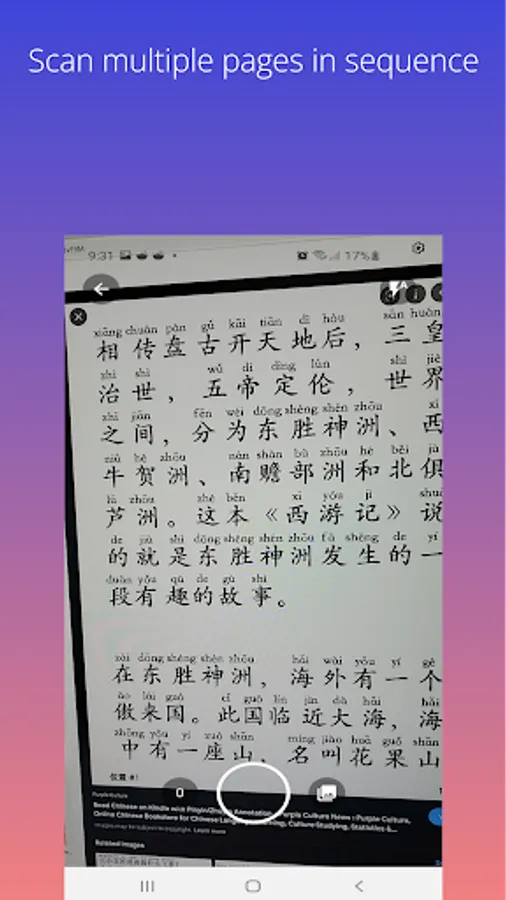 Scan multiple pages in sequence
9:31
17%
xiāng chuán pán gǔ kāi tiān dì hòu sān huáng
相传盘古开天地后，三皇
zhì shì wǔ dì dìng lún shì jiè
治世，五帝定伦，世界
zhī jiān fēn wéi dōng shèng shén zhōu xī
之间，分为东胜神洲、西
niú hè zhōu nán shàn bù zhōu hé běi jù
牛贺洲、南赡部洲和北俱
lú zhōu zhè běn xī yóu jì shuō
芦洲。这本《西游记》说
de jiù shì dōng shèng shén zhōu fā shēng de yí
的就是东胜神洲发生的一
duàn yǒu qù de gù shi
段有趣的故事。
zài dōng shèng shén zhōu hǎi wài yǒu yí gè
在东胜神洲，海外有一个
ào lái guó cǐ guó lín jìn dà hǎi hǎi
傲来国。此国临近大海，海
zhōng yǒu yí zuò shān míng jiào huā guǒ shān
中有一座山，名叫花果山
位置 #1
0
Purple Culture
Read Chinese on Kindle with Pinyin
Annotation
Purple Culture News : Purple Culture,
Online Chinese Bookstore for Chinese
Learning, Culture Studying, Statistics &...
Images may be subject to copyright. Learn more
Related images